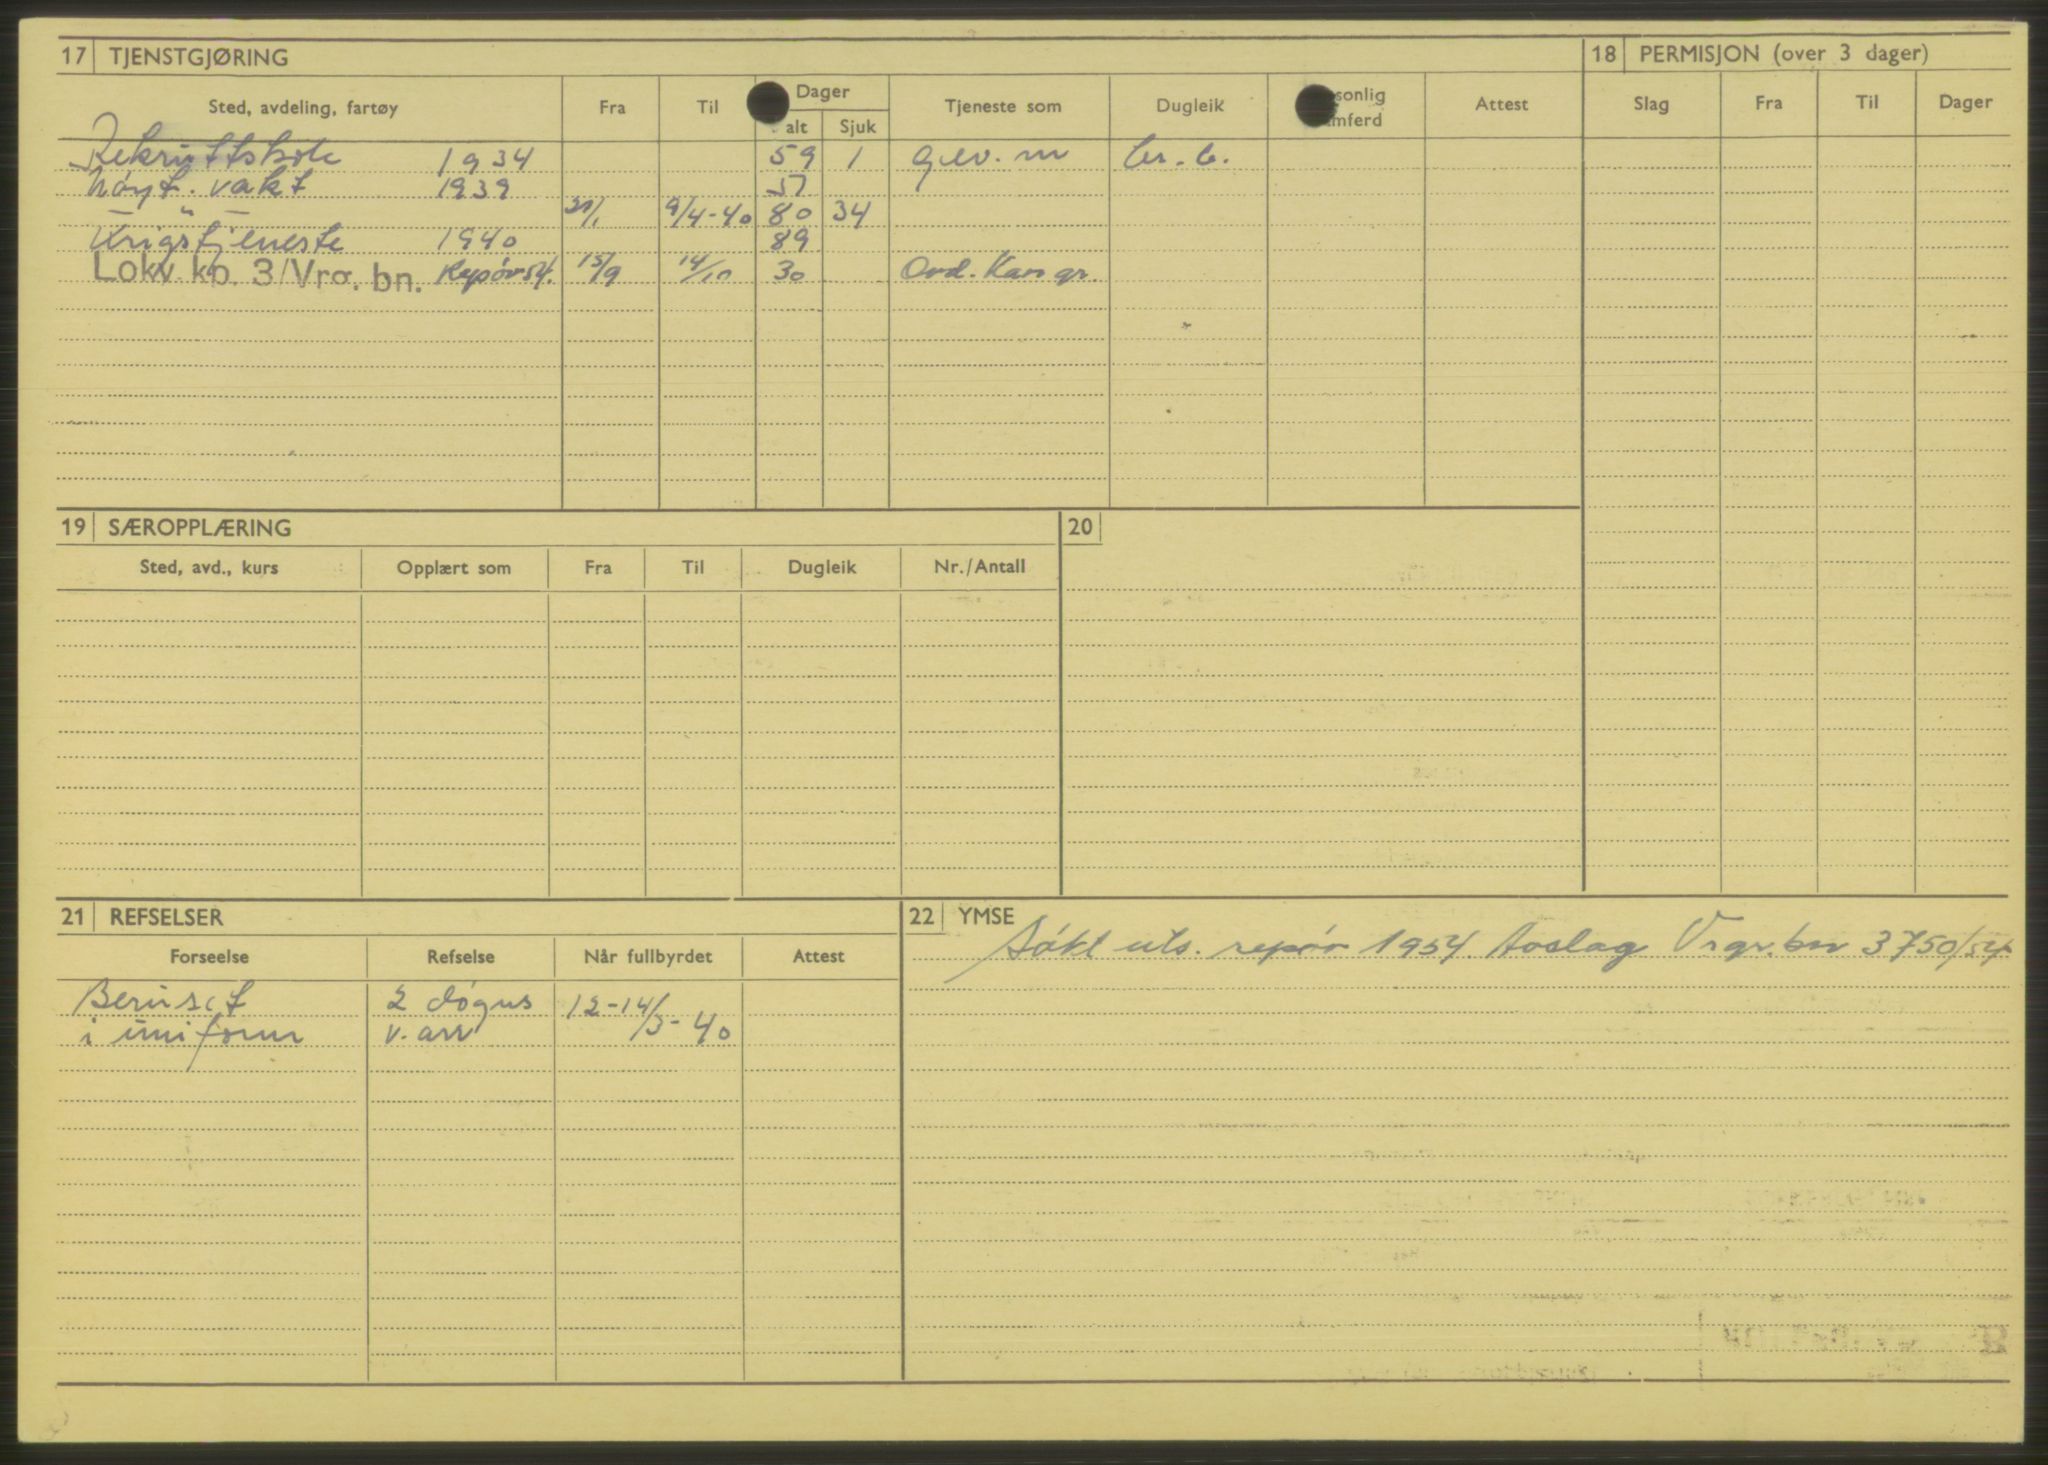 17 TJENSTGJØRING
18 PERMISJON (over 3 dager)
Sted, avdeling, fartøy Fra Til Dager alt Sjuk Tjeneste som Dugleik sonlig mferd Attest Slag Fra Til Dager
Rekruttskole 1934 59 1 gev. m br. b.
Nøyt. vakt 1939 57
" 21/1 9/4-40 80 34
Krigstjeneste 1940 89
Lokv. kp. 3/Vrg. bn. Repøv 54. 15/9 14/10 30 Ord. Kan gr.
19 SÆROPPLÆRING
20
Sted, avd., kurs Opplært som Fra Til Dugleik Nr./Antall
21 REFSELSER
22 YMSE
Forseelse Refselse Når fullbyrdet Attest
Søkt uts. repøv 1954. Avslag Vrgr. bn 3750/54
Beruset 2 døgns 12-14/3-40
i uniform v. arr